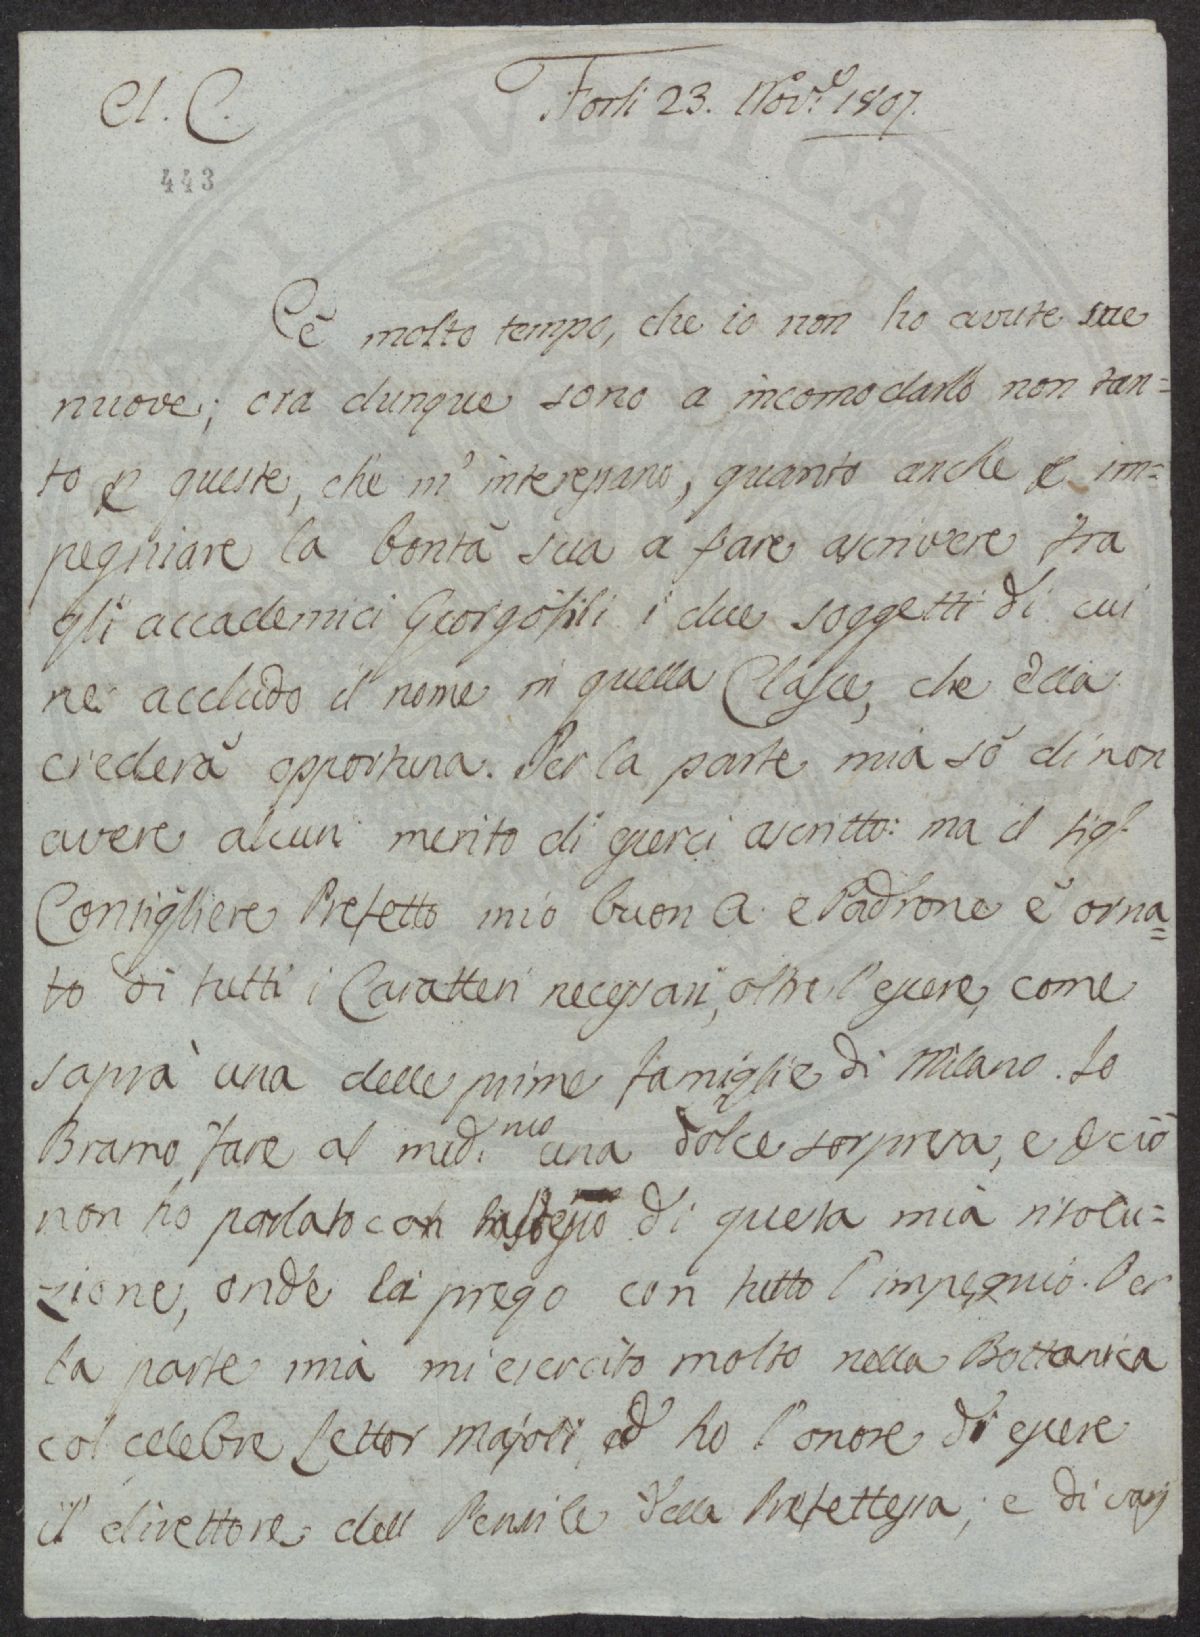 Cl. C.
Forlì 23. Nov.e 1807.
443
C'è molto tempo, che io non ho avute sue
nuove; ora dunque sono a incomodarlo non tan=
to p queste, che m'interessano, quanto anche p im=
pegniare la bontà sua a fare ascrivere fra
gli accademici Georgofili i due soggetti di cui
ne accludo il nome in quella Classe, che ella
crederà opportuna. Per la parte mia sò di non
avere alcun merito di esserci ascritto: ma il sigr
Consigliere Prefetto mio buon A. e Padrone è orna=
to di tutti i Caratteri necessari, oltre l'essere, come
saprà una delle prime famiglie di Milano. Io
Bramo fare al med.mo una dolce sorpresa, e p ciò
non ho parlato con di questa mia risolu=
zione, onde la prego con tutto l'impegnio. Per
la parte mia mi esercito molto nella Bottanica
col celebre Lettor Majoli, ed ho l'onore di essere
il direttore dell Pensile della Prefettessa; e di varj